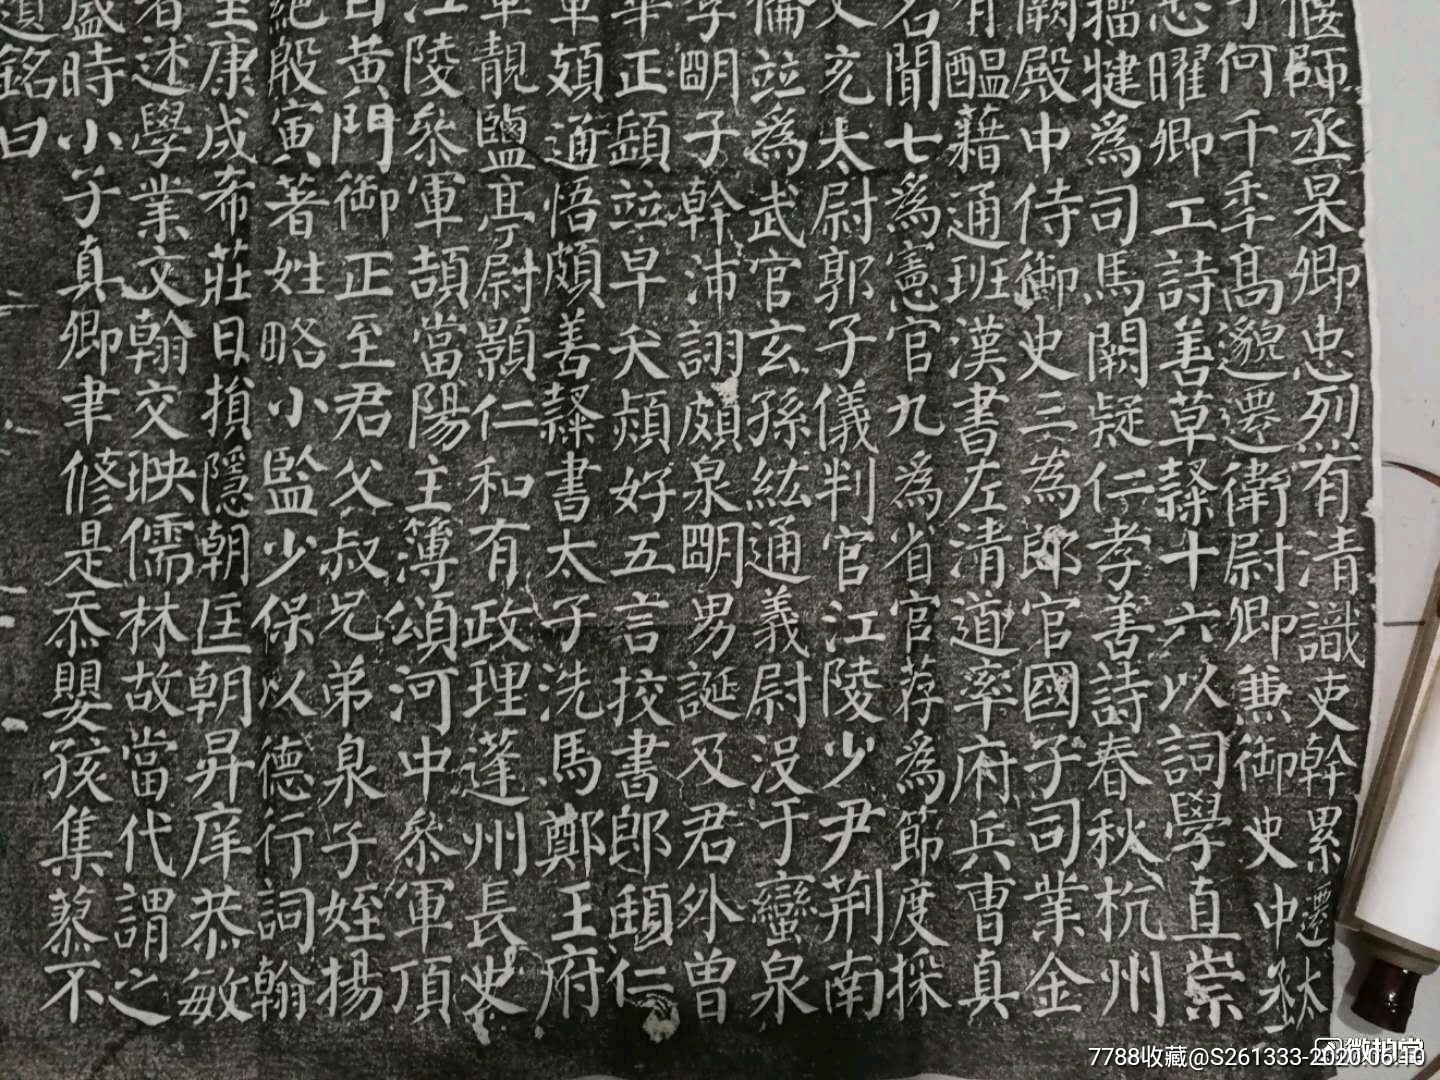 偃師丞杲卿忠烈有清識吏幹累遷太
于何千年髙邈遷衛尉卿兼御史中丞
忠曜卿工詩善草隸十六以詞學直崇
擂揵爲司馬闕疑仁孝善詩春秋杭州
闕殿中侍御史三爲郎官國子司業金
有醞藉通班漢書左清道率府兵曹真
名聞七爲憲官九爲省官荐爲節度採
文充太尉郭子儀判官江陵少尹荆南
倫竝爲武官玄孫紘通義尉没于蠻泉
孚朙子幹沛詡頗泉朙男誕及君外曾
華正頤竝早夭熲好五言挍書郎頲仁
軍頍通悟頗善隸書太子洗馬鄭王府
軍靚鹽亭尉顥仁和有政理蓬州長史
江陵叅軍頡當陽主簿頌河中叅軍頂
日黄門御正至君父叔兄弟泉子姪揚
絕殷寅著姓略小監少保以德行詞翰
至康成希莊日損隱朝匡朝昇庠恭敏
者述學業文翰交映儒林故當代謂之
盛時小子真卿聿修是忝嬰孩集蓼不
銘曰
7788收藏@S261333-2020.06.10
微拍堂